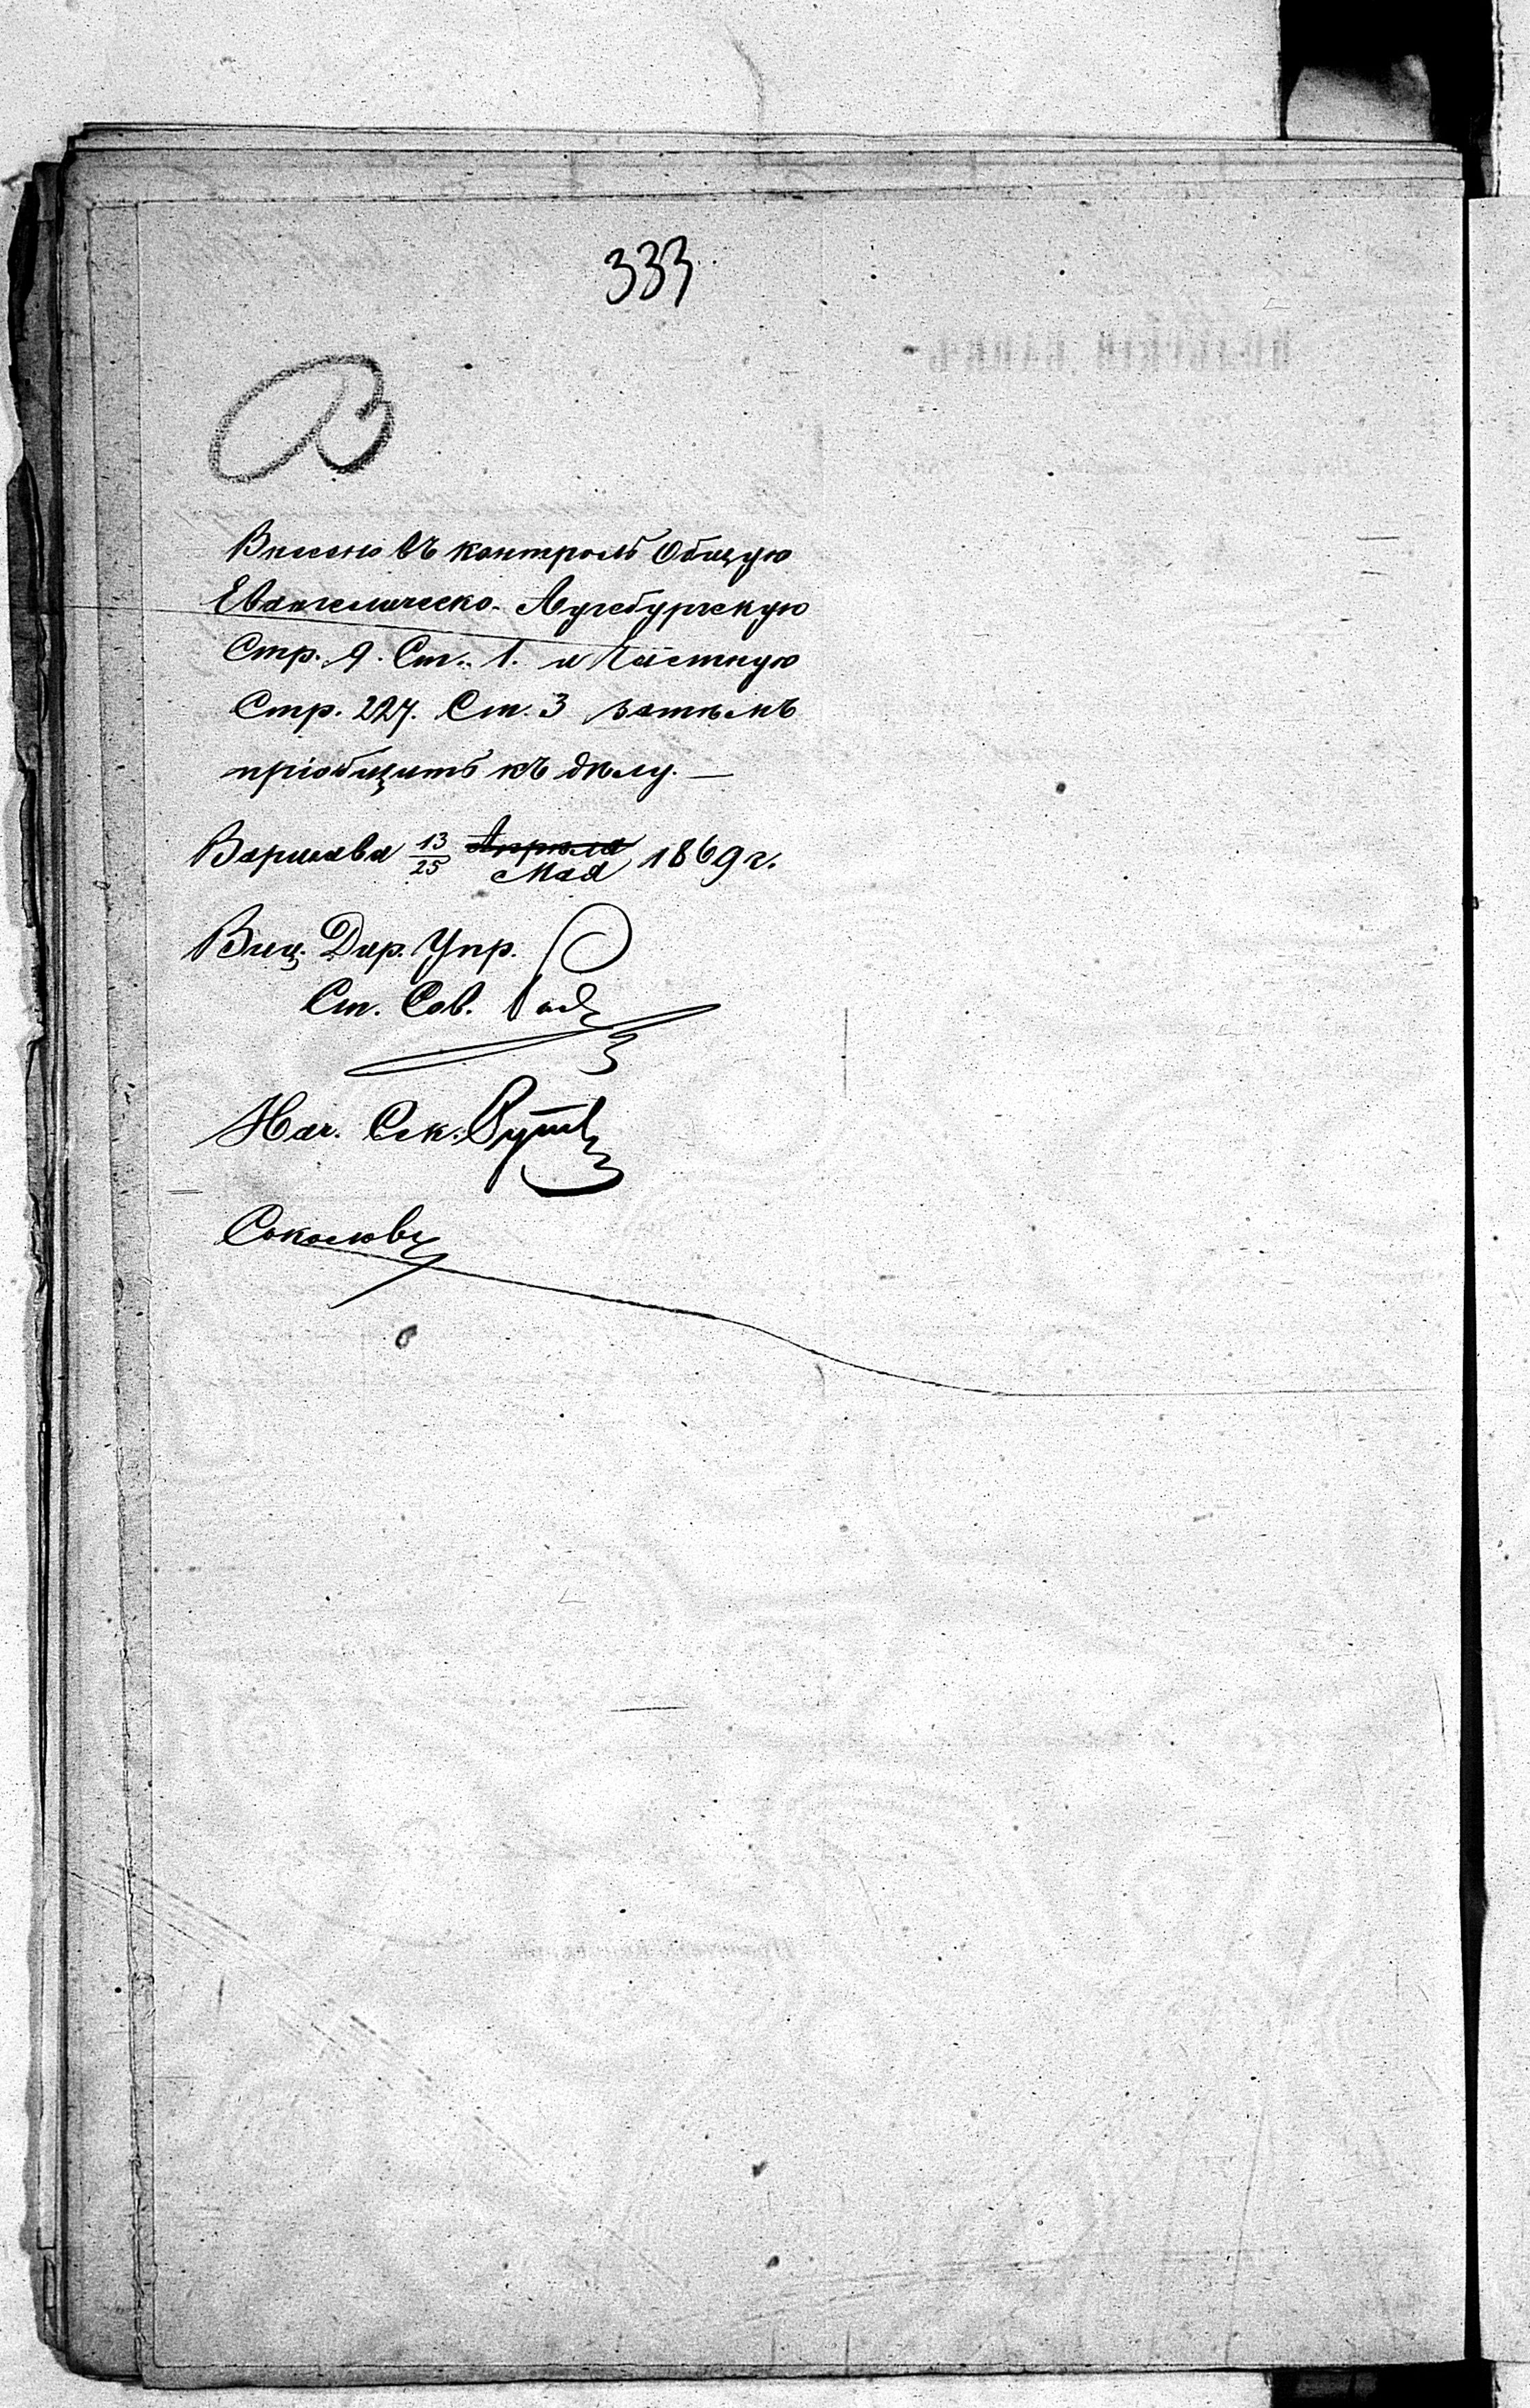 333
В
Внесено въ контроль Общую
Евангелическо-Аугсбургскую
Стр. 9. Ст. 1. и Частную
Стр. 227. Ст. 3 затѣмъ
пріобщить къ дѣлу. —
Варшава 13/25 Апрѣля Мая 1869 г.
Виц. Дир. Упр.
Ст. Сов.
Нач. Сек.
Соколовъ